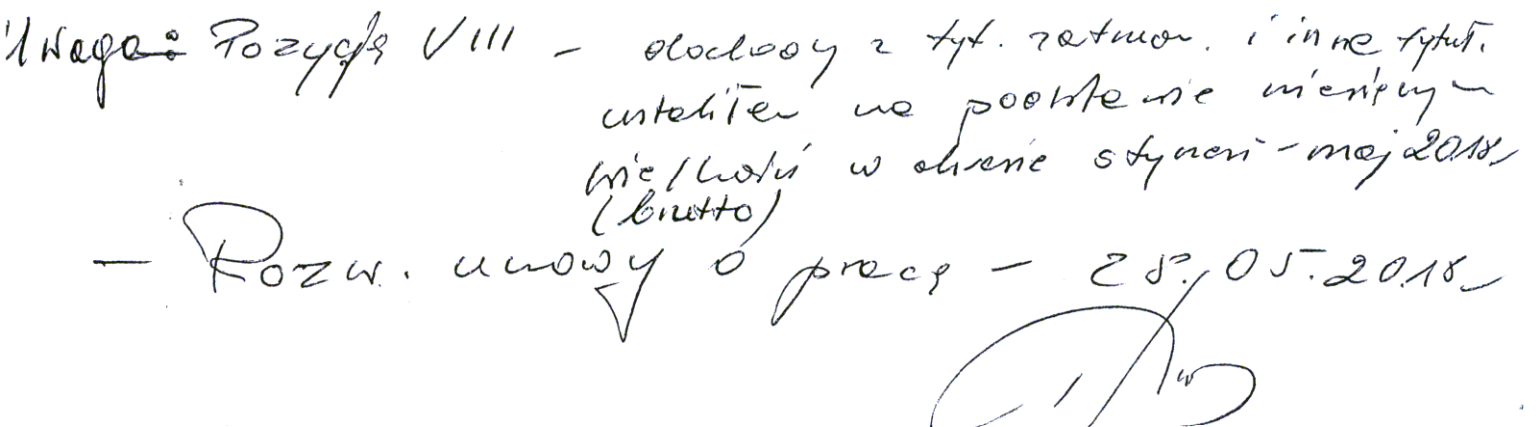 Uwaga: Pozycja VIII – dochody z tyt. zatrudn. i inne tytuł.
ustaliłem na podstawie miesięcznym
wielkości w okresie styczeń – maj 2018
(brutto)
– Rozw. umowy o pracę – 25.05.2018